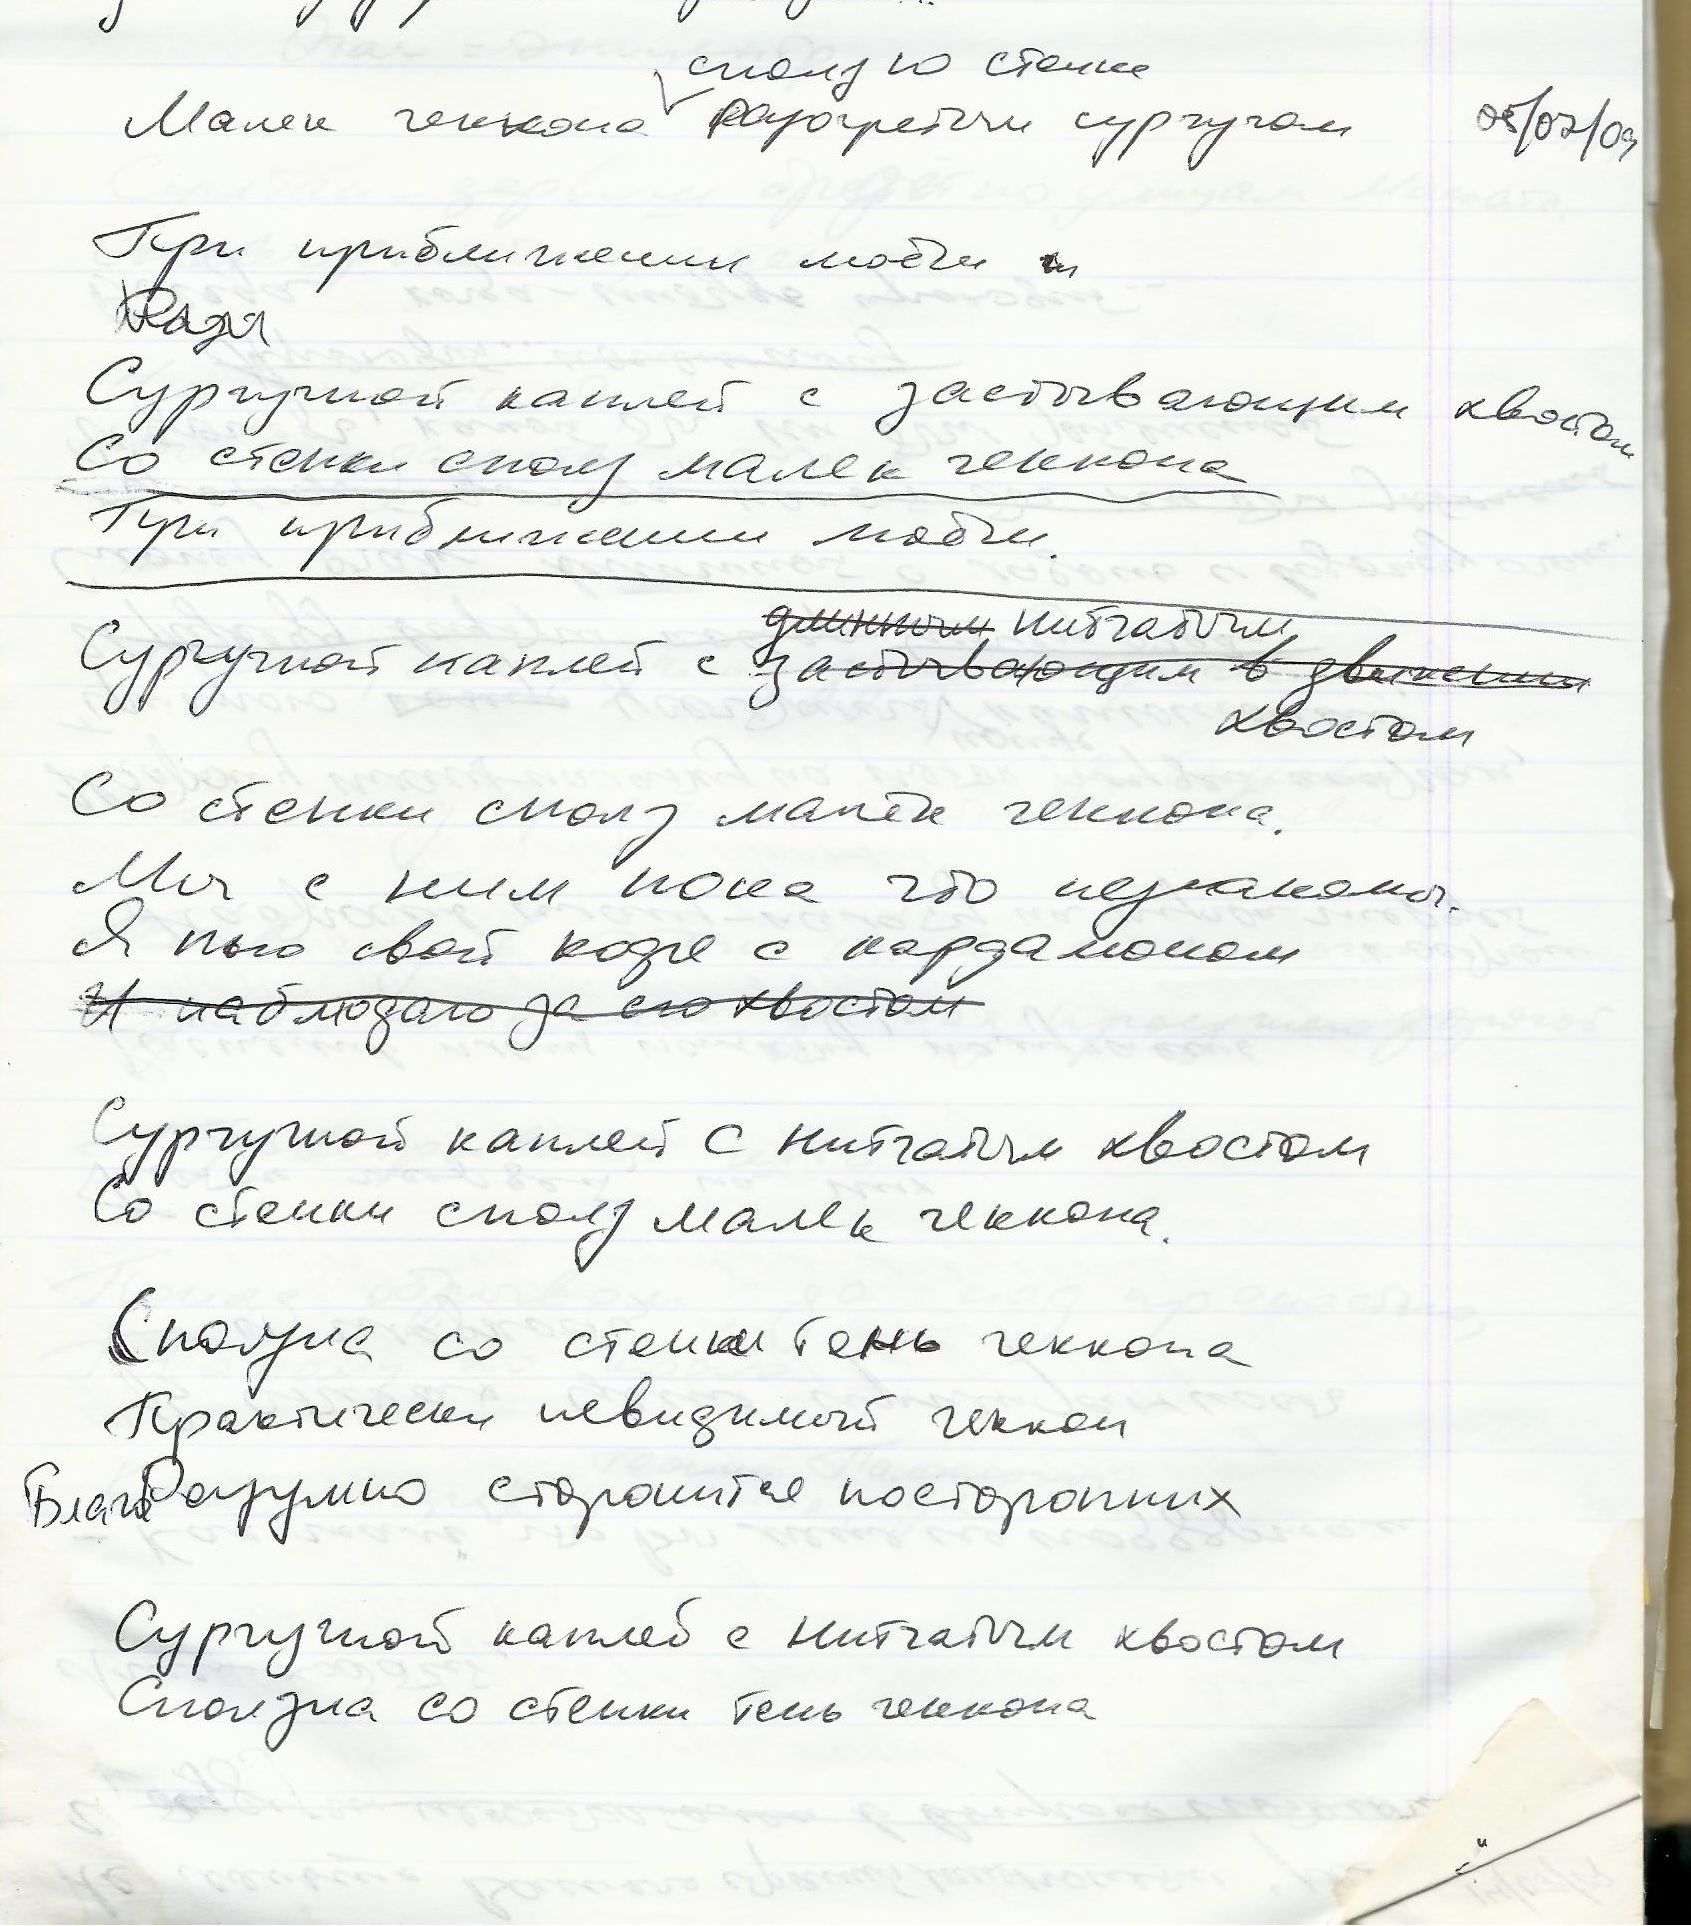 сполз по стенке
Малек геккона разогретым сургучом 05/02/09
При приближении мости и
Сургучной каплей с застывающим хвостом
Со стенки сполз малек геккона
При приближении
длинным нитчатым
Сургучной каплей с застывающим в движении
хвостом
Со стенки сполз малёк геккона.
Мы с ним пока что незнакомы.
Я пью свой кофе с кардамоном
И наблюдаю за его хвостом
Сургучной каплей с нитчатым хвостом
Со стенки сполз малек геккона.
Сползла со стенки тень геккона
Практически невидимый геккон
Благоразумно сторонится посторонних
Сургучной каплей с нитчатым хвостом
Сползла со стенки тень геккона